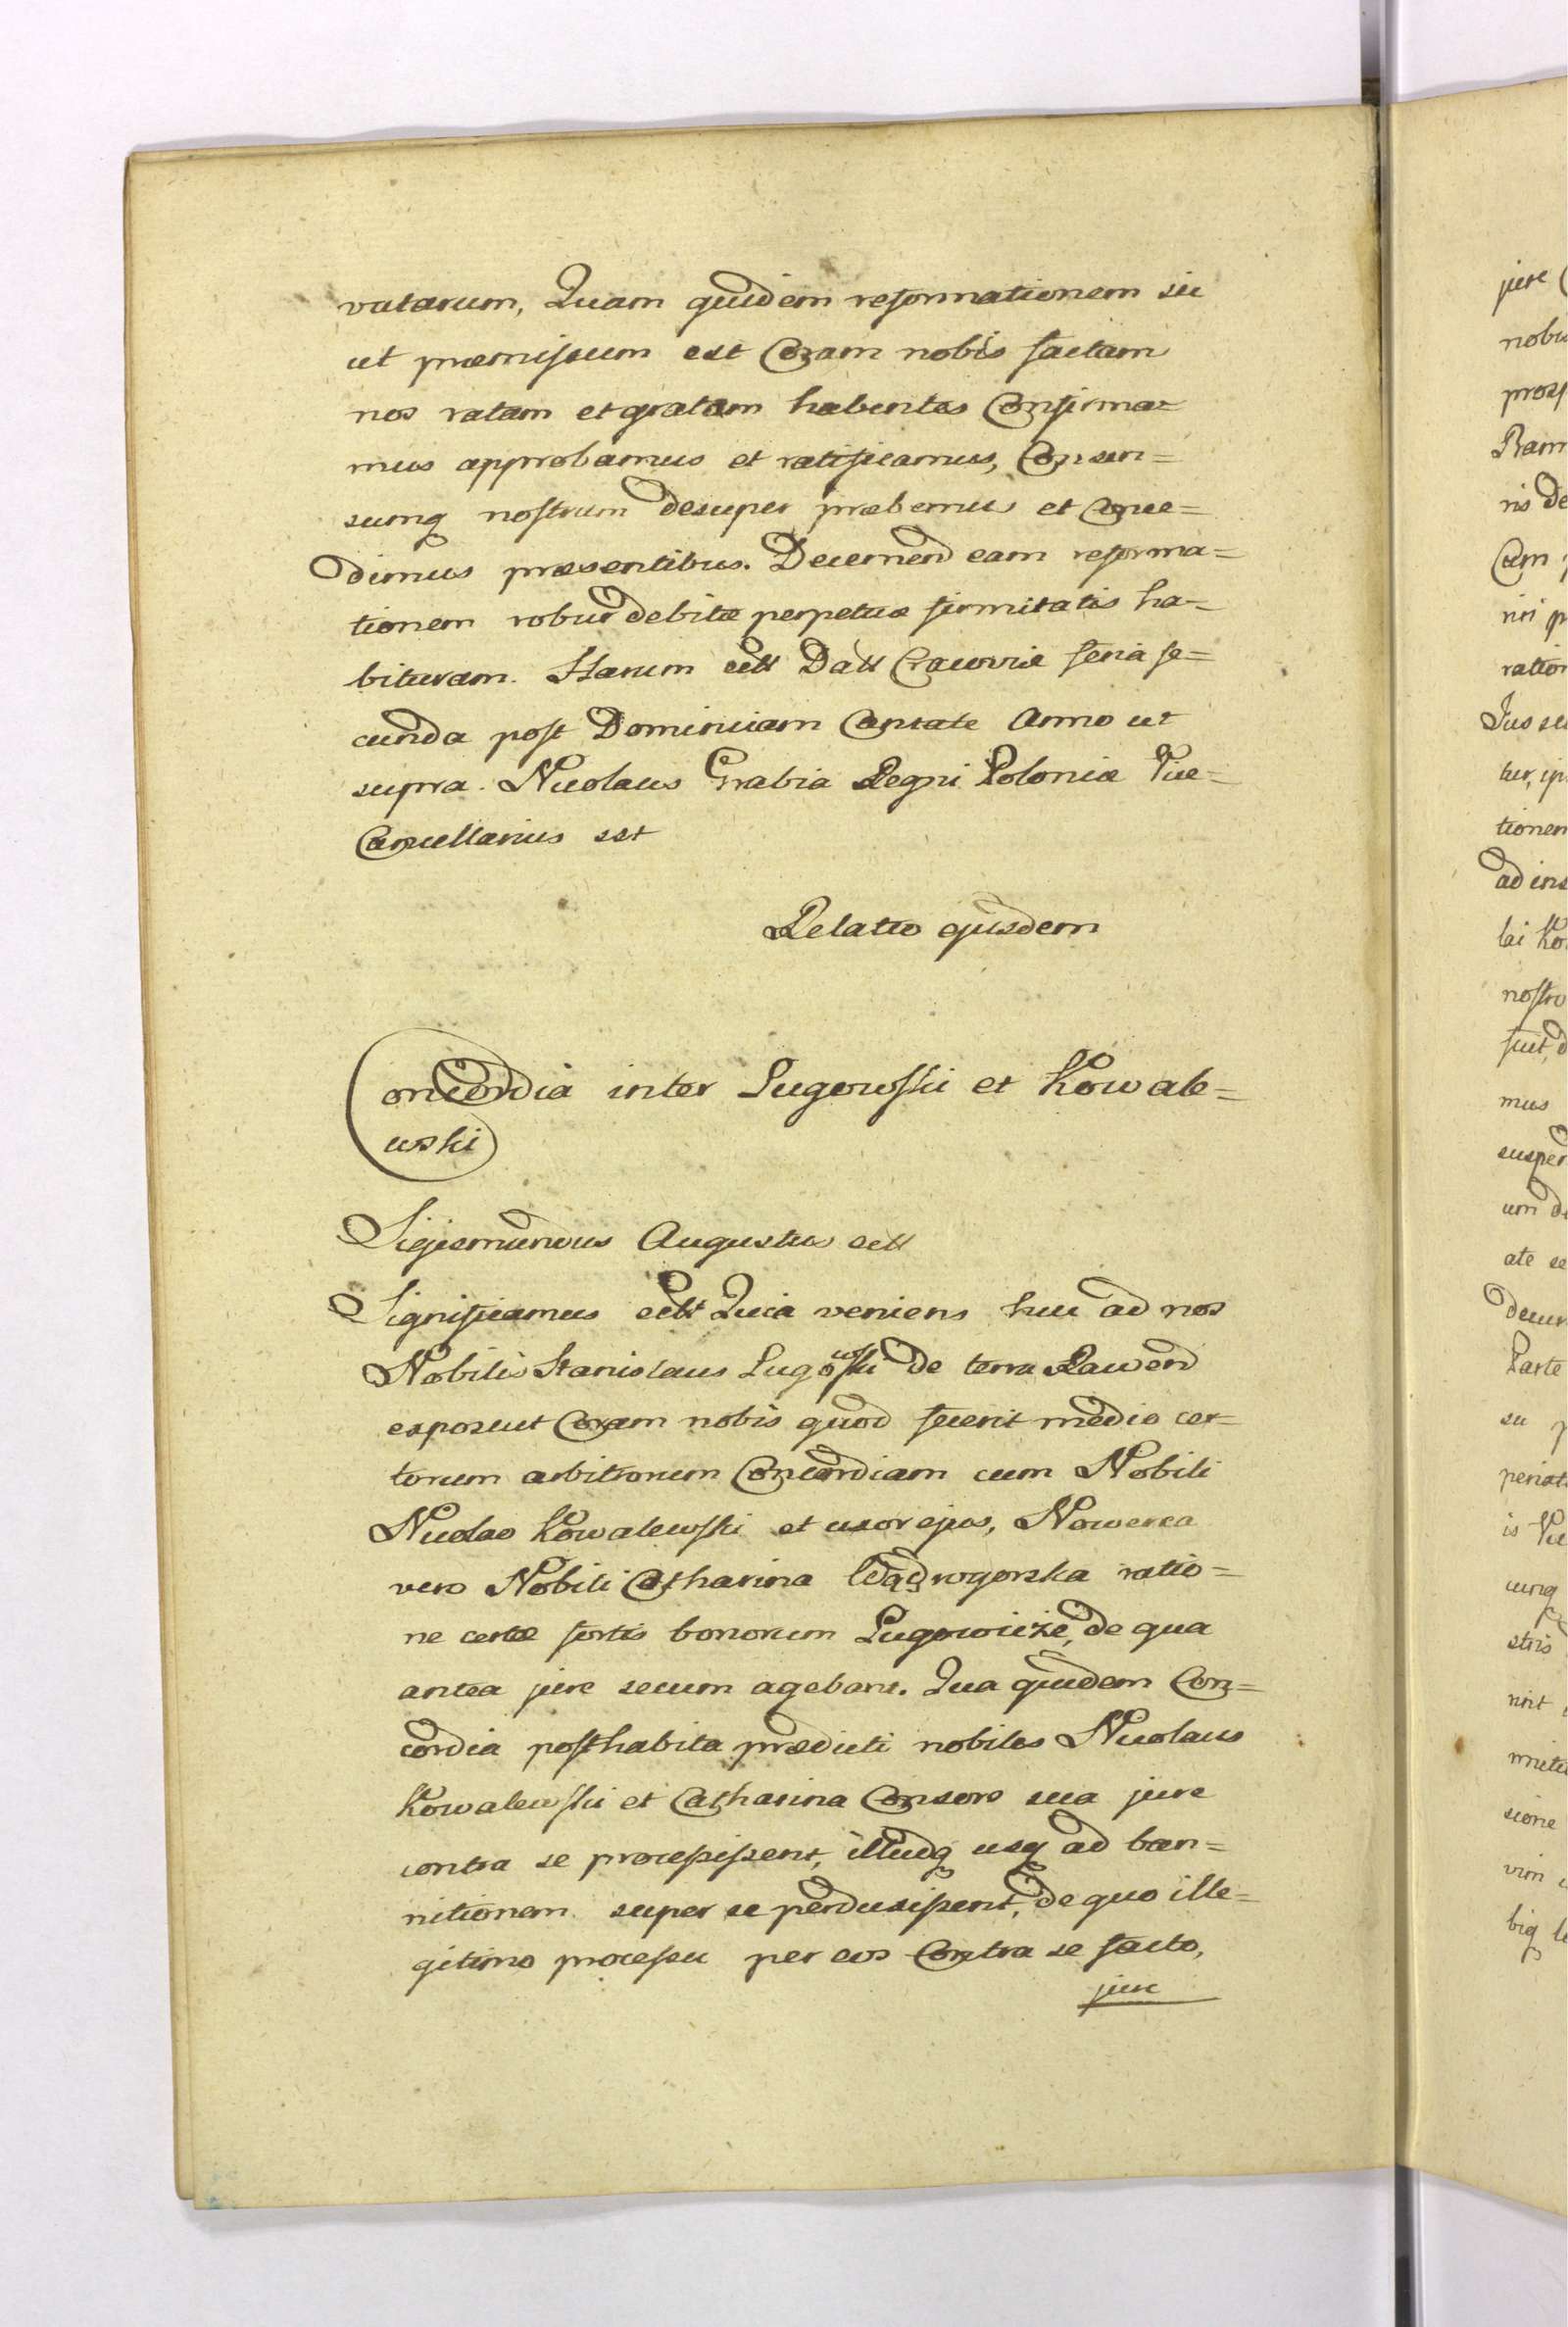 vatarum, Quam quidem reformationem sic
ut præmissum est Coram nobis factam
nos ratam et gratam habentes Confirma=
mus approbamus et ratificamus, Consen=
sumq nostrum desuper præbemus et Conce=
dimus præsentibus. Decernend eam reforma=
tionem robur debitæ perpetuæ firmitatis ha=
bituram. Harum ett Datt Cracoviæ feria se=
cunda post Dominicam Cantate Anno ut
supra. Nicolaus Grabia Regni Poloniæ Vice=
Cancellarius sst
Relatio ejusdem
Concordia inter Lugowski et Kowale=
wski
Sigismundus Augustus ett
Significamus ett Quia veniens huc ad nos
Nobilis Stanislaus Lugowski de terra Rawend
exposuit Coram nobis quod fecerit medio cer=
torum arbitrorum Concordiam cum Nobili
Nicolao Kowalewski et uxor ejus, Nowerca
vero Nobili Catharina ratio=
ne certæ sortis bonorum Lugowicze, de qua
antea jure secum agebant. Qua quidem Con=
cordia posthabita prædicti nobiles Nicolaus
Kowalewski et Catharina Consors sua jure
contra se processissent, illudq usq ad ban=
nitionem super se perduxissent, de quo ille=
gitimo processu per eos Contra se facto,
jure
jure
nobis
prosp
Bann
ris de
Cam
niri
ration
Jus se
tur, ip
tionem
ad ins
lai Ko
nostro
fuit, d
mus
suspen
um de
ate se
decur
Parte
su p
periat
is Vic
cunq
stris
nit
mitt
sione
vim
biq le